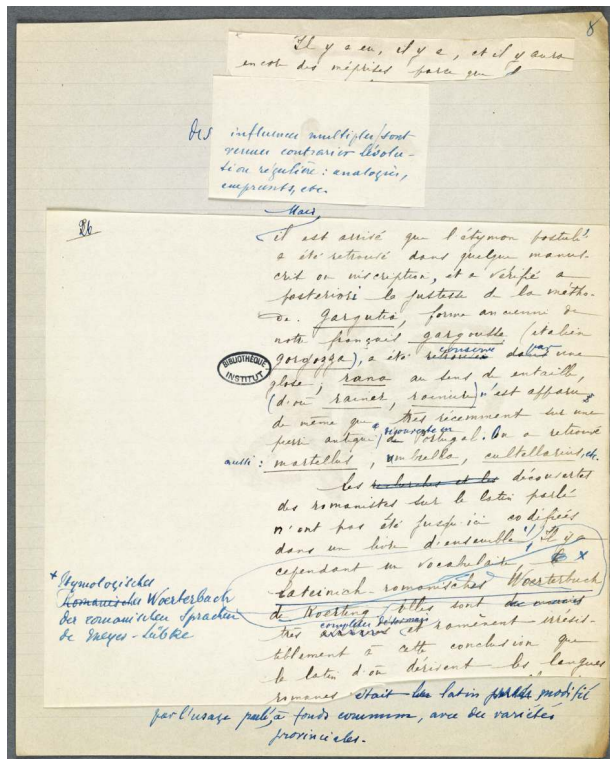 8
Il y a eu, il y a, et il y aura
encor des méprises parce que
des influences multiples sont
venues contrarier l'évolu-
tion régulière : analogies,
emprunts, etc.
26
Mais,
il est arrivé que l'étymon postulé
a été retrouvé dans quelque manus-
crit ou inscription, et a vérifié a
posteriori la justesse de la métho-
de. Gargutia, forme ancienne de
notre français gargousse (italien
conservé par
gorgozza), a été retrouvé dans une
BIBLIOTHEQUE
INSTITUT
glose ; rana au sens de entaille,
(d'où rainer, rainure) n'est apparu
de même que très récemment sur une
découverte en
pierre antique de Portugal. On a retrouvé
aussi : martellus, umbrella, cultellarius, etc.
Les recherches et les découvertes
des romanistes sur le latin parlé
n'ont pas été jusqu'ici codifiées
dans un livre d'ensemble. Il y a
cependant un vocabulaire le x
Lateinich-romanisches Woerterbuch
de Koerting. Elles sont
complètes désormais
très et ramènent irrésis-
tiblement à cette conclusion que
le latin d'où dérivent les langues
romanes était un latin parlé modifié
par l'usage parlé, à fonds commun, avec des variétés
provinciales.
x Etymologisches
Romanisches Woerterbach
der romanischen Sprachen
de Meyer-Lübke